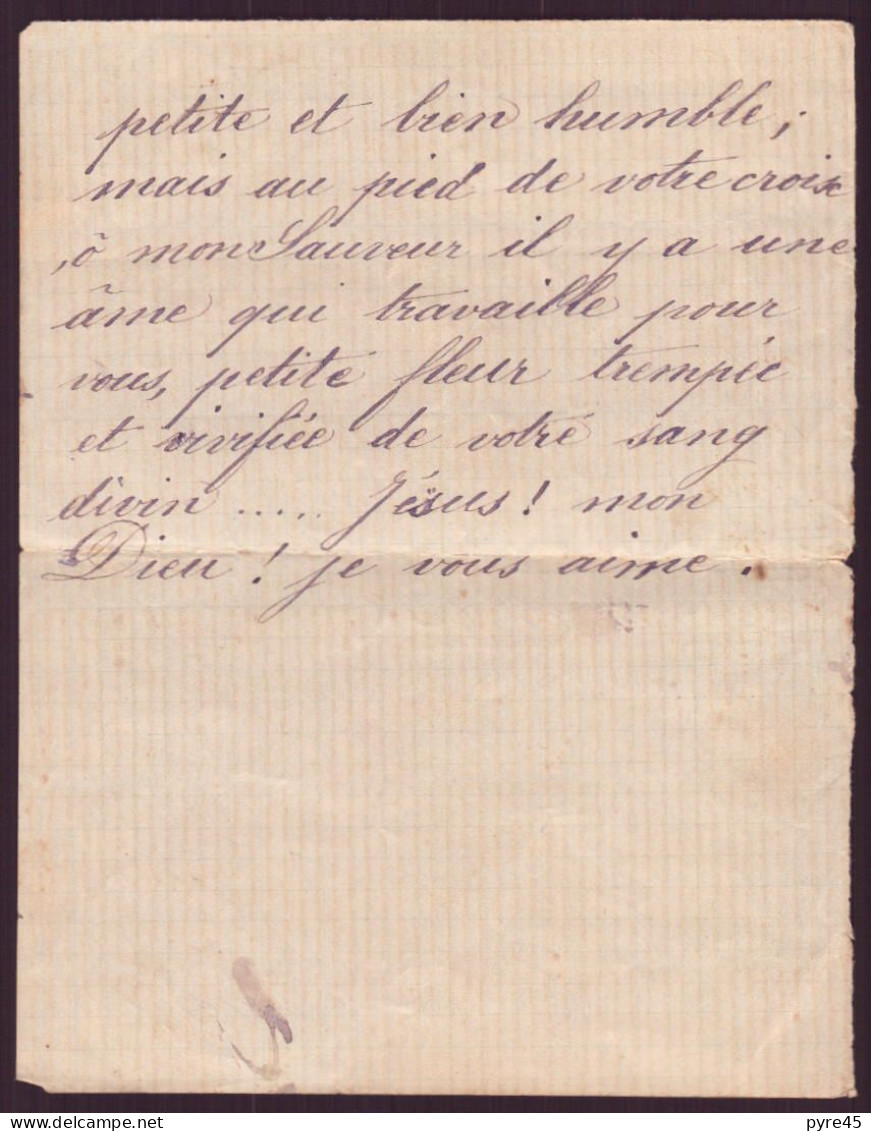 petite et bien humble;
mais au pied de votre croix
, ô mon Sauveur il y a une
âme qui travaille pour
vous, petite fleur trempée
et vivifiée de votre sang
divin ..... Jésus ! mon
Dieu ! je vous aime.
delcampe.net
pyre45